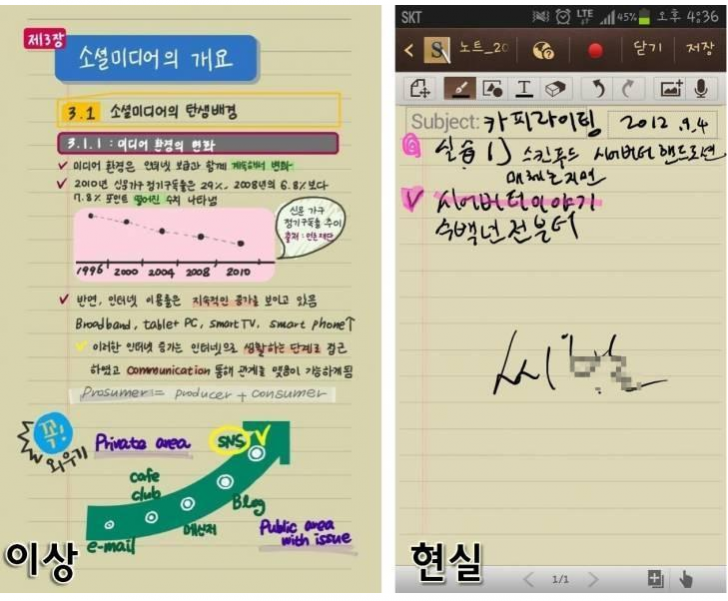 제3장
소셜미디어의 개요
3.1 소셜미디어의 탄생배경
3.1.1 : 미디어 환경의 변화
✓ 미디어 환경은 인터넷 보급과 함께 계속해서 변화
✓ 2010년 신문가구 정기구독률은 29%, 2008년의 6.8%보다
7.8% 포인트 떨어진 수치 나타냄
신문 가구
정기구독률 추이
출처 : 언론재단
1996 2000 2004 2008 2010
✓ 반면, 인터넷 이용률은 지속적인 증가를 보이고 있음
Broadband, tablet PC, smart TV, smart phone↑
✓ 이러한 인터넷 증가는 인터넷으로 생활하는 단계로 접근
하였고 communication 통해 관계를 맺음이 가능하게됨
Prosumer = producer + consumer
꼭!
외우기
Private area
SNS
cafe
club
Blog
메신저
e-mail
Public area
with issue
이상
SKT LTE 45% 오후 4:36
노트_20
닫기
저장
Subject: 카피라이팅 2012.9.4
실습 1) 스킨푸드 시어버터 핸드크림
매체는 지면
✓ 시어버터이야기
수백년 전부터
현실
1/1